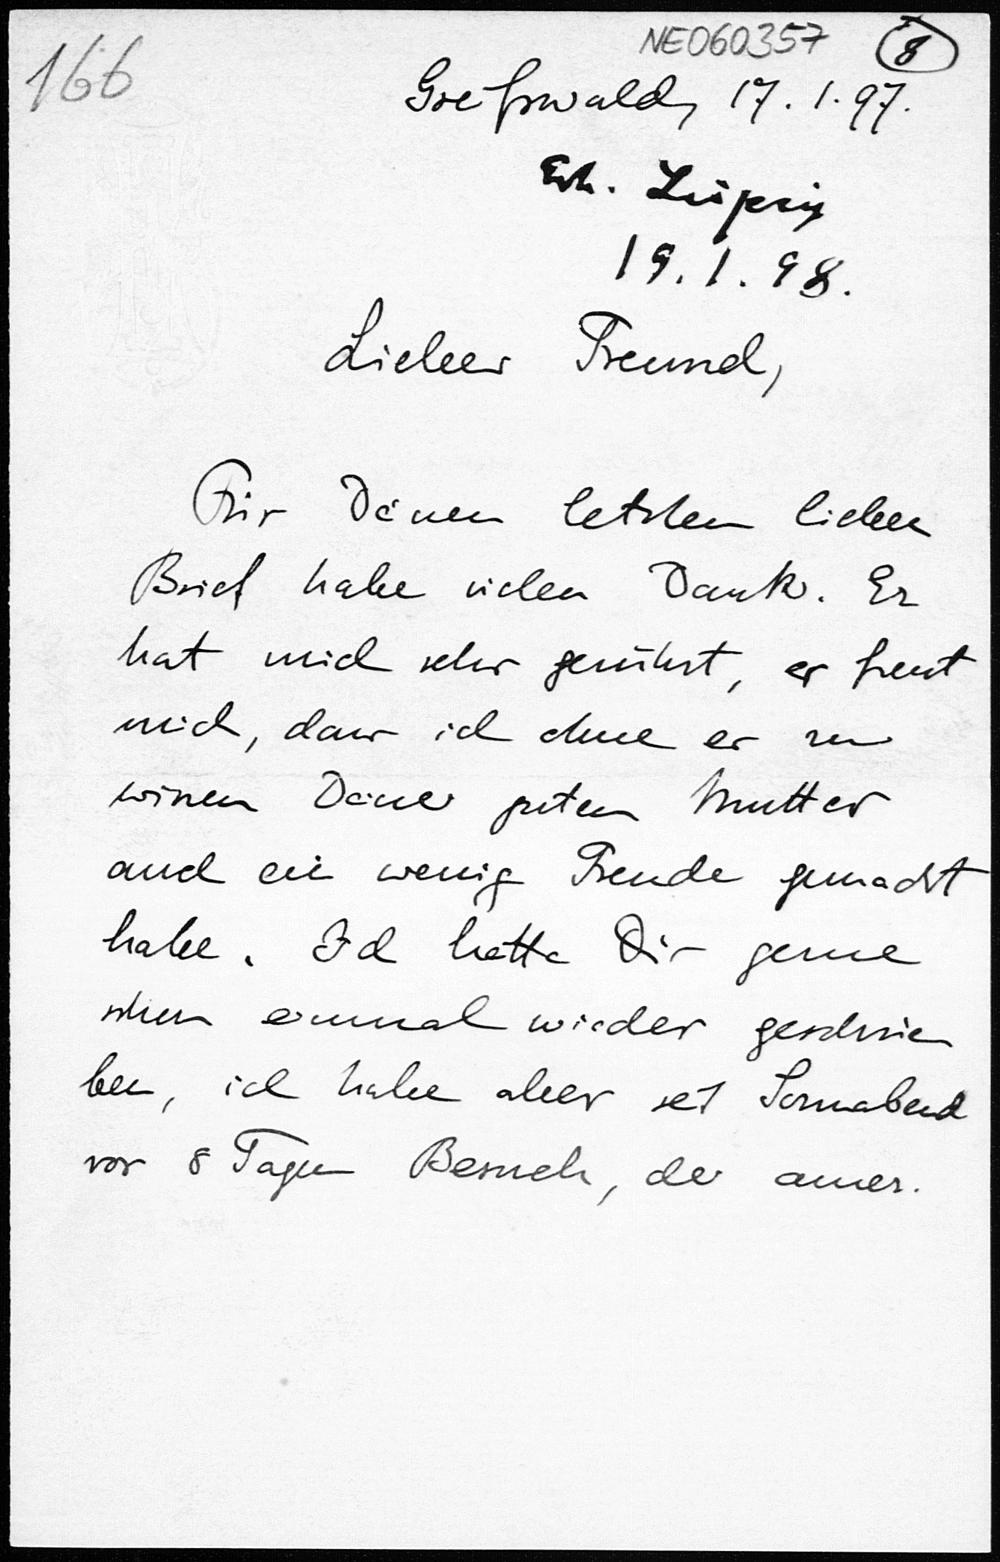 166
NE060357
8
Greifswald, 17.1.97.
Erh. Leipzig
19.1.98.
Lieber Freund,
Für Deinen letzten lieben
Brief habe vielen Dank. Er
hat mich sehr gerührt, es freut
mich, dass ich ohne es zu
wissen Deiner guten Mutter
auch ein wenig Freude gemacht
habe. Ich hätte Dir gerne
schon einmal wieder geschrie
ben, ich habe aber seit Sonnabend
vor 8 Tagen Besuch, der amer.